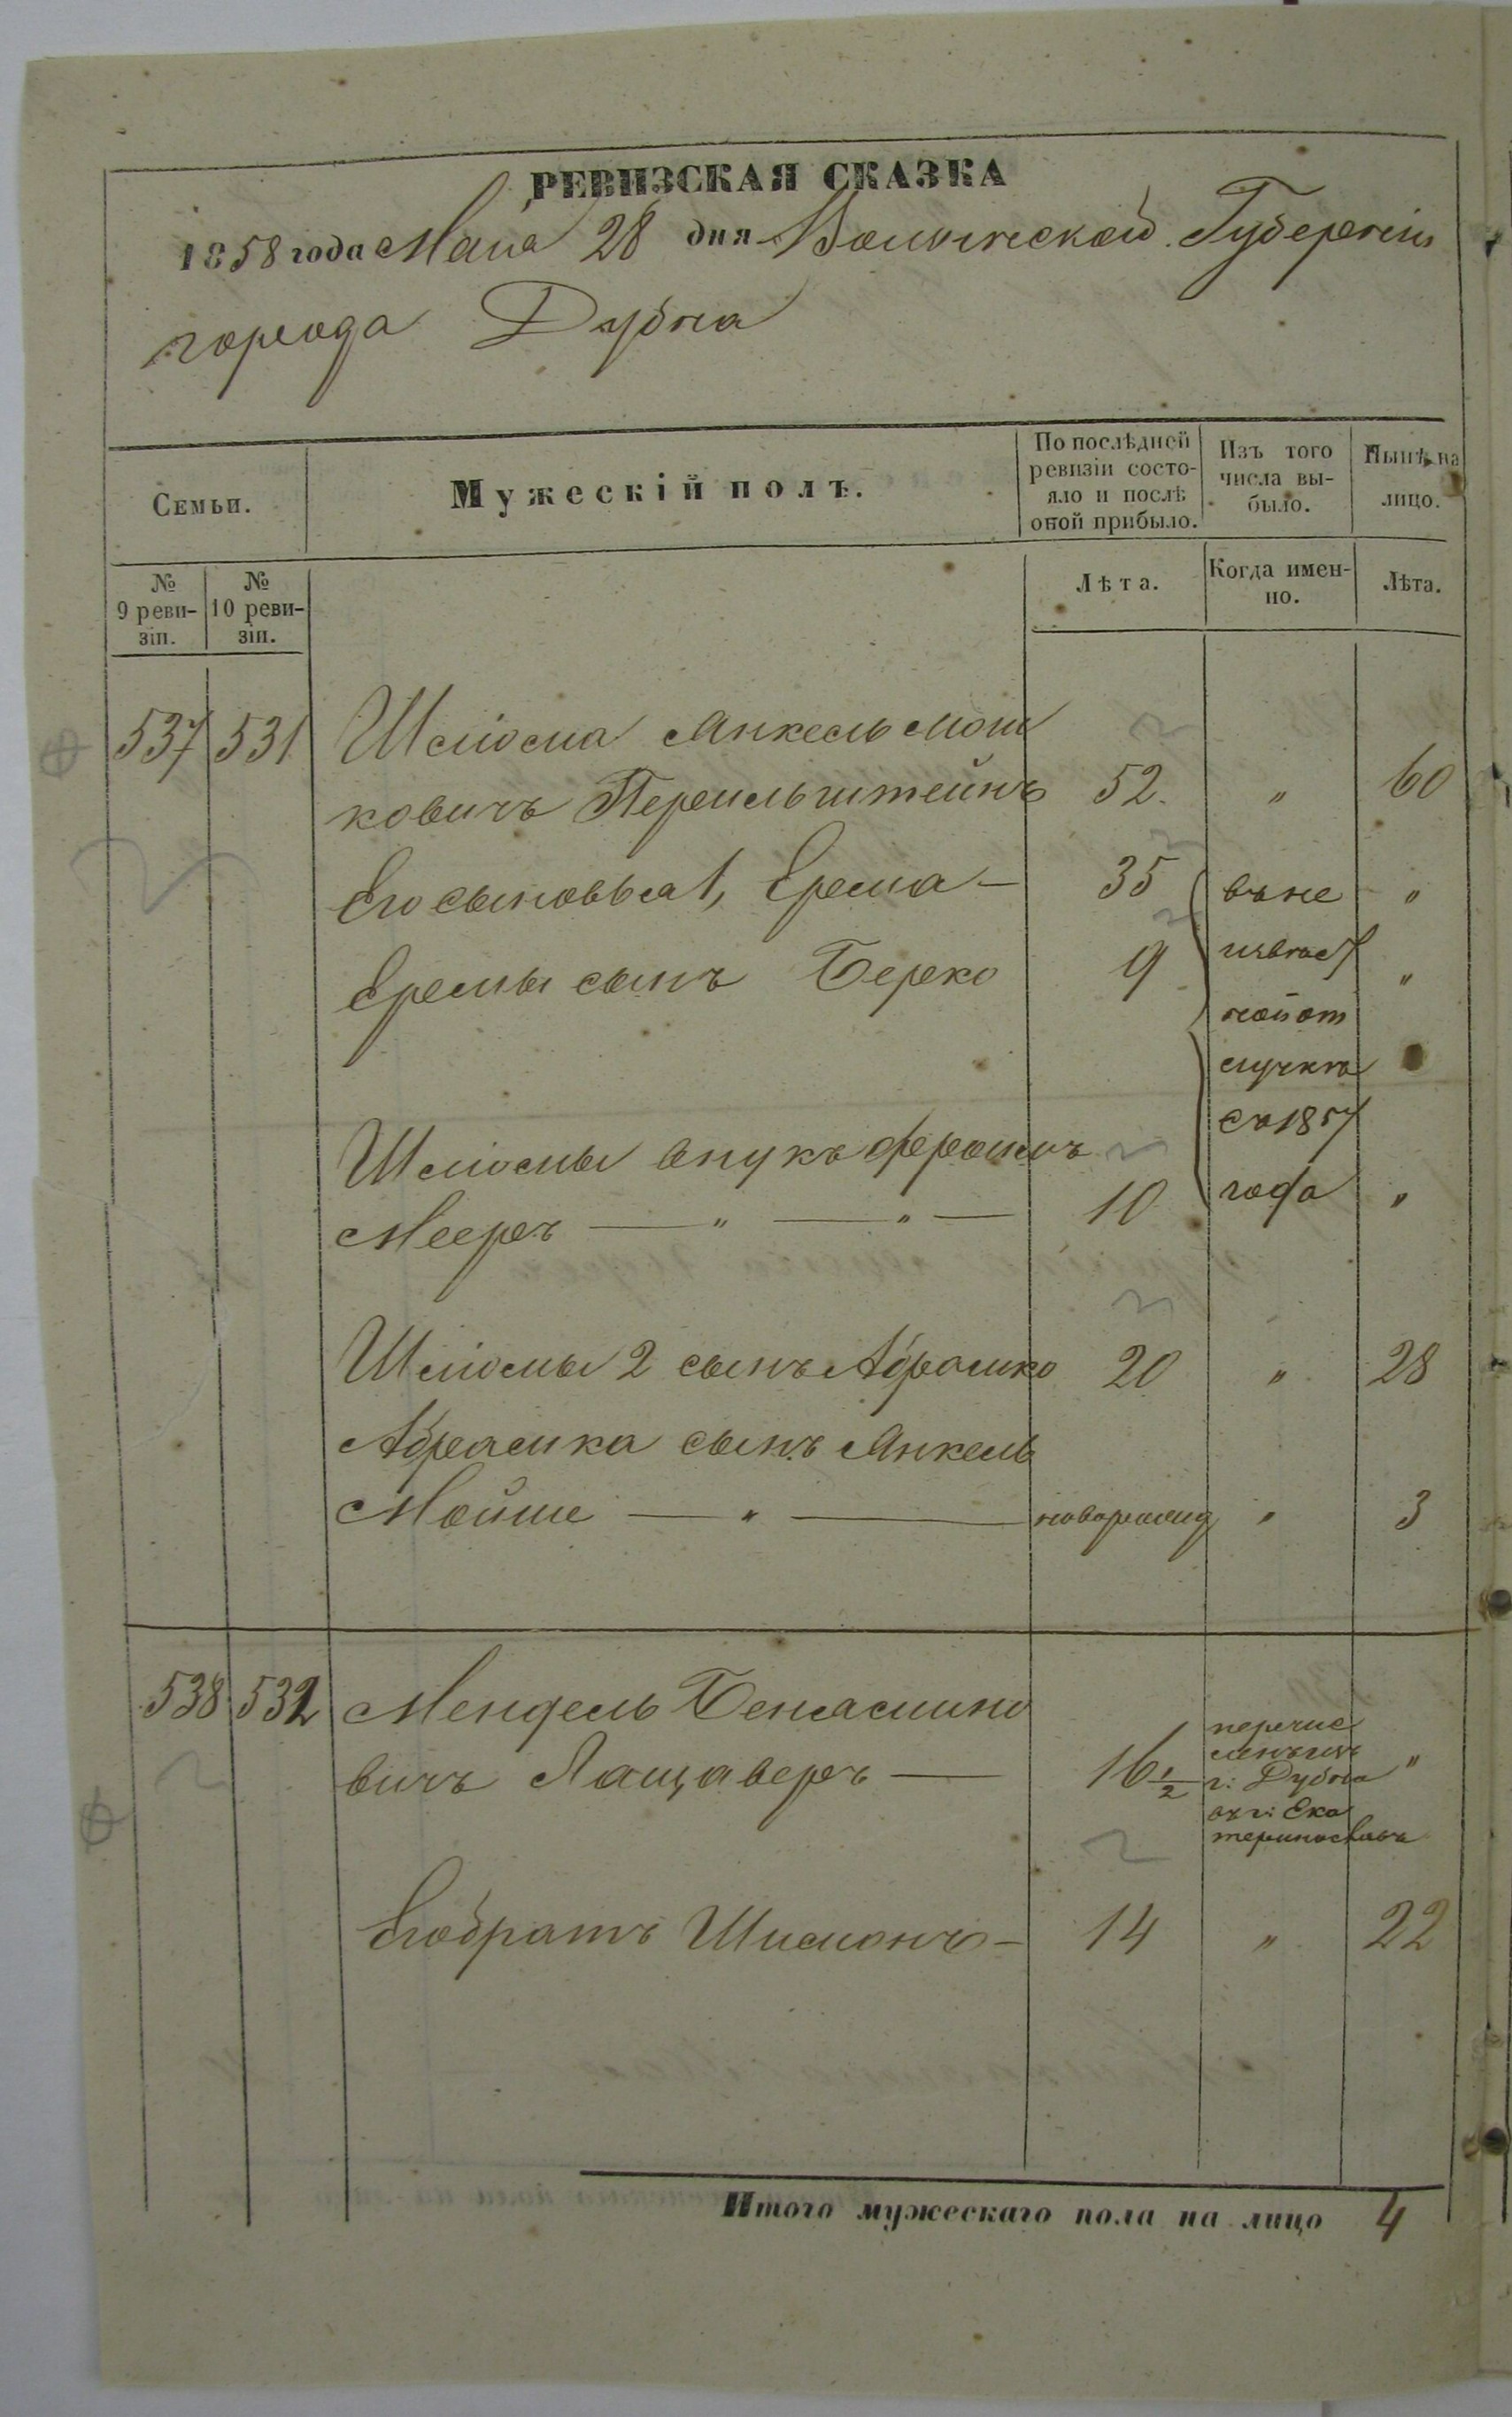 РЕВИЗСКАЯ СКАЗКА
1858 года Мая 28 дня Волынской Губерніи
города Дубна
Семьи.
Мужескій полъ.
По послѣдней ревизіи состо-яло и послѣ оной прибыло.
Изъ того числа вы-было.
Нынѣ на лицо.
№ 9 реви-зіи.
№ 10 реви-зіи.
Лѣта.
Когда имен-но.
Лѣта.
537 531 Шліома Янкель Мош
ковичъ Перельштейнъ 52. " 60
Его сыновья 1, Ерема — 35 въ не "
Еремы сынъ Берко 9 извѣст "
ной от
лучкѣ
съ 1857
Шліомы внукъ Фроимъ
Мееръ — " — " — 10 года "
Шліомы 2 сынъ Абрамко 20 " 28
Абрамка сынъ Янкель
Мойше — " — новорожд " 3
538 532 Мендель Бениамино
вичъ Лащаверъ — 16 1/2 перечис
ленъ изъ
г: Дубна "
въ г: Ека
теринославъ
Его братъ Шимонъ — 14 " 22
Итого мужескаго пола на лицо 4